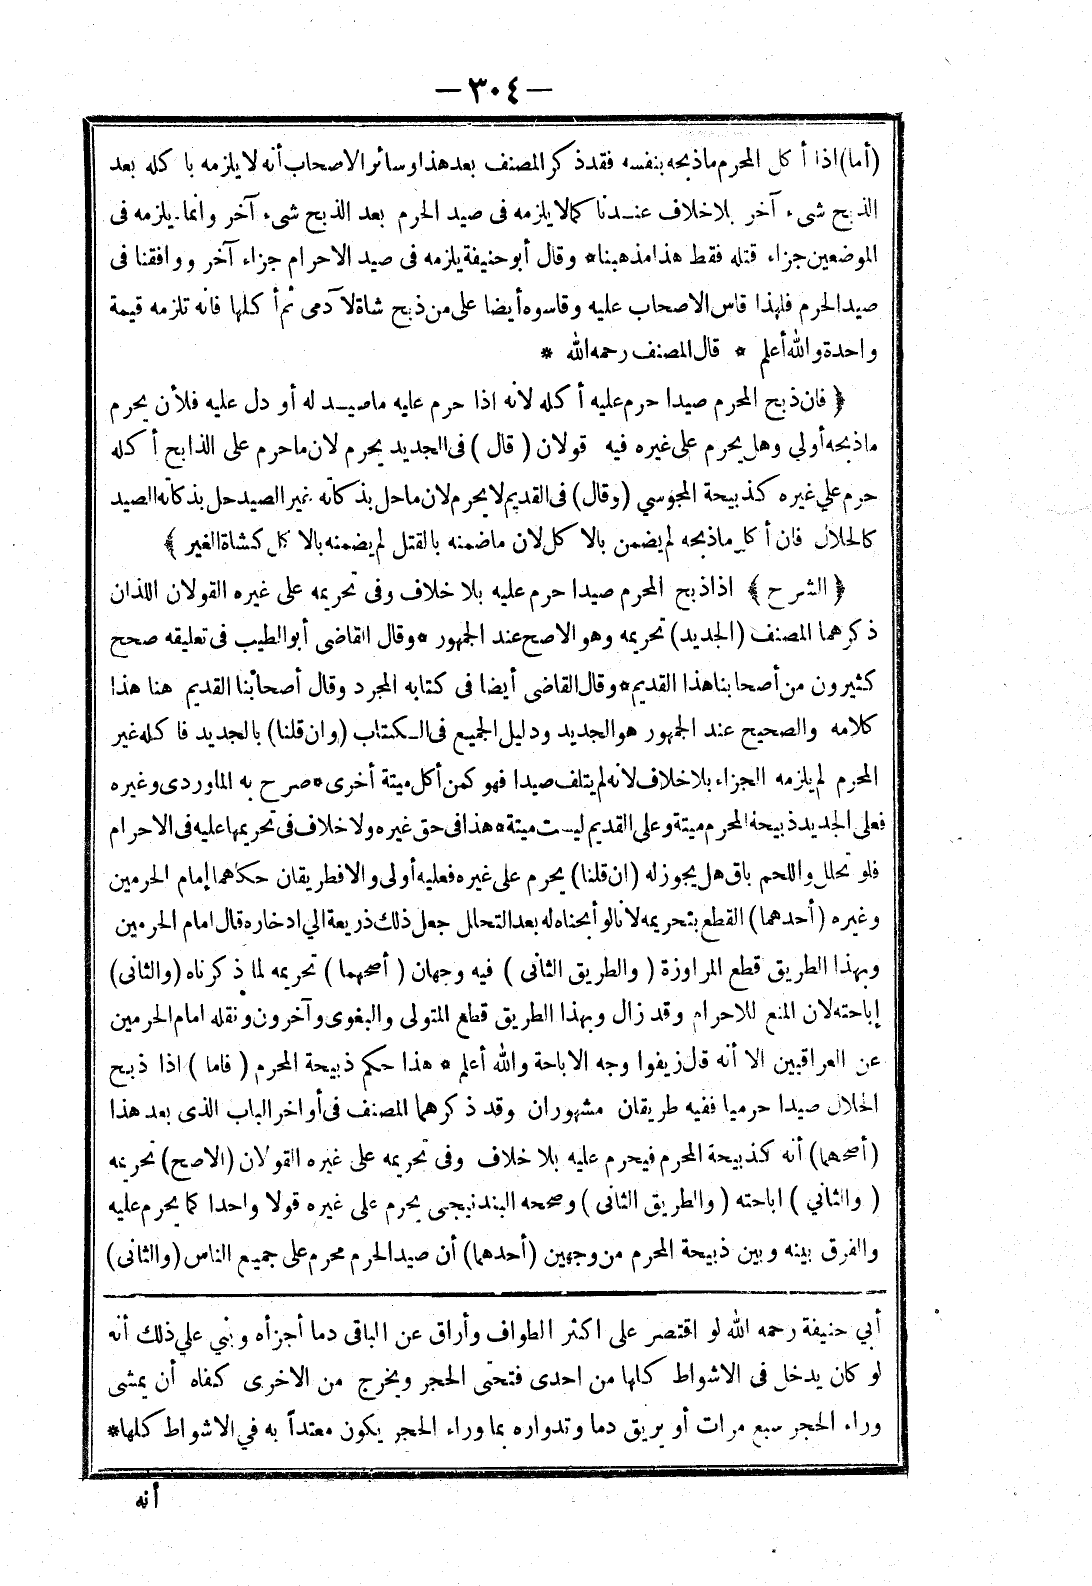 — ٣٠٤ —
(أما) اذا أكل المحرم ماذبحه بنفسه فقد ذكر المصنف بعد هذا وسائر الاصحاب أنه لا يلزمه باكله بعد
الذبح شىء آخر بلا خلاف عندنا كما لا يلزمه فى صيد الحرم بعد الذبح شىء آخر وانما يلزمه فى
الموضعين جزاء قتله فقط هذا مذهبنا * وقال أبو حنيفة يلزمه فى صيد الاحرام جزاء آخر ووافقنا فى
صيد الحرم فلهذا قاس الاصحاب عليه وقاسوه أيضا على من ذبح شاة لآدمى ثم أكلها فانه تلزمه قيمة
واحدة والله أعلم * قال المصنف رحمه الله *
﴿ فان ذبح المحرم صيدا حرم عليه أكله لانه اذا حرم عليه ماصيد له أو دل عليه فلأن يحرم
ماذبحه أولي وهل يحرم على غيره فيه قولان (قال) فى الجديد يحرم لان ماحرم على الذابح أكله
حرم علي غيره كذبيحة المجوسي (وقال) فى القديم لا يحرم لان ماحل بذكاته غير الصيد حل بذكاته الصيد
كالحلال فان أكل ماذبحه لم يضمن بالاكل لان ماضمنه بالقتل لم يضمنه بالاكل كشاة الغير ﴾
﴿ الشرح ﴾ اذا ذبح المحرم صيدا حرم عليه بلا خلاف وفى تحريمه على غيره القولان اللذان
ذكرهما المصنف (الجديد) تحريمه وهو الاصح عند الجمهور * وقال القاضى أبو الطيب فى تعليقه صحح
كثيرون من أصحابنا هذا القديم * وقال القاضى أيضا فى كتابه المجرد وقال أصحابنا القديم هنا هذا
كلامه والصحيح عند الجمهور هو الجديد ودليل الجميع فى الكتاب (وان قلنا) بالجديد فاكله غير
المحرم لم يلزمه الجزاء بلا خلاف لانه لم يتلف صيدا فهو كمن أكل ميتة أخرى * صرح به الماوردى وغيره
فعلى الجديد ذبيحة المحرم ميتة وعلى القديم ليست ميتة * هذا فى حق غيره ولا خلاف فى تحريمها عليه فى الاحرام
فلو تحلل واللحم باق هل يجوز له (ان قلنا) يحرم على غيره فعليه أولى والا فطريقان حكاهما إمام الحرمين
وغيره (أحدهما) القطع بتحريمه لانا لو أبحناه له بعد التحلل جعل ذلك ذريعة الي ادخاره قال امام الحرمين
وبهذا الطريق قطع المراوزة (والطريق الثانى) فيه وجهان (أصحهما) تحريمه لما ذكرناه (والثانى)
إباحته لان المنع للاحرام وقد زال وبهذا الطريق قطع المتولى والبغوى وآخرون ونقله امام الحرمين
عن العراقيين الا أنه قال زيفوا وجه الاباحة والله أعلم * هذا حكم ذبيحة المحرم (فاما) اذا ذبح
الحلال صيدا حرميا ففيه طريقان مشهوران وقد ذكرهما المصنف فى أواخر الباب الذى بعد هذا
(أصحهما) أنه كذبيحة المحرم فيحرم عليه بلا خلاف وفى تحريمه على غيره القولان (الاصح) تحريمه
(والثاني) اباحته (والطريق الثانى) وصححه البندنيجى يحرم على غيره قولا واحدا كما يحرم عليه
والفرق بينه وبين ذبيحة المحرم من وجهين (أحدهما) أن صيد الحرم محرم على جميع الناس (والثانى)
أبي حنيفة رحمه الله لو اقتصر على اكثر الطواف وأراق عن الباقى دما أجزأه وبني علي ذلك أنه
لو كان يدخل فى الاشواط كلها من احدى فتحتى الحجر ويخرج من الاخرى كفاه أن يمشى
وراء الحجر سبع مرات أو يريق دما وتدواره بما وراء الحجر يكون معتداً به في الاشواط كلها *
أنه